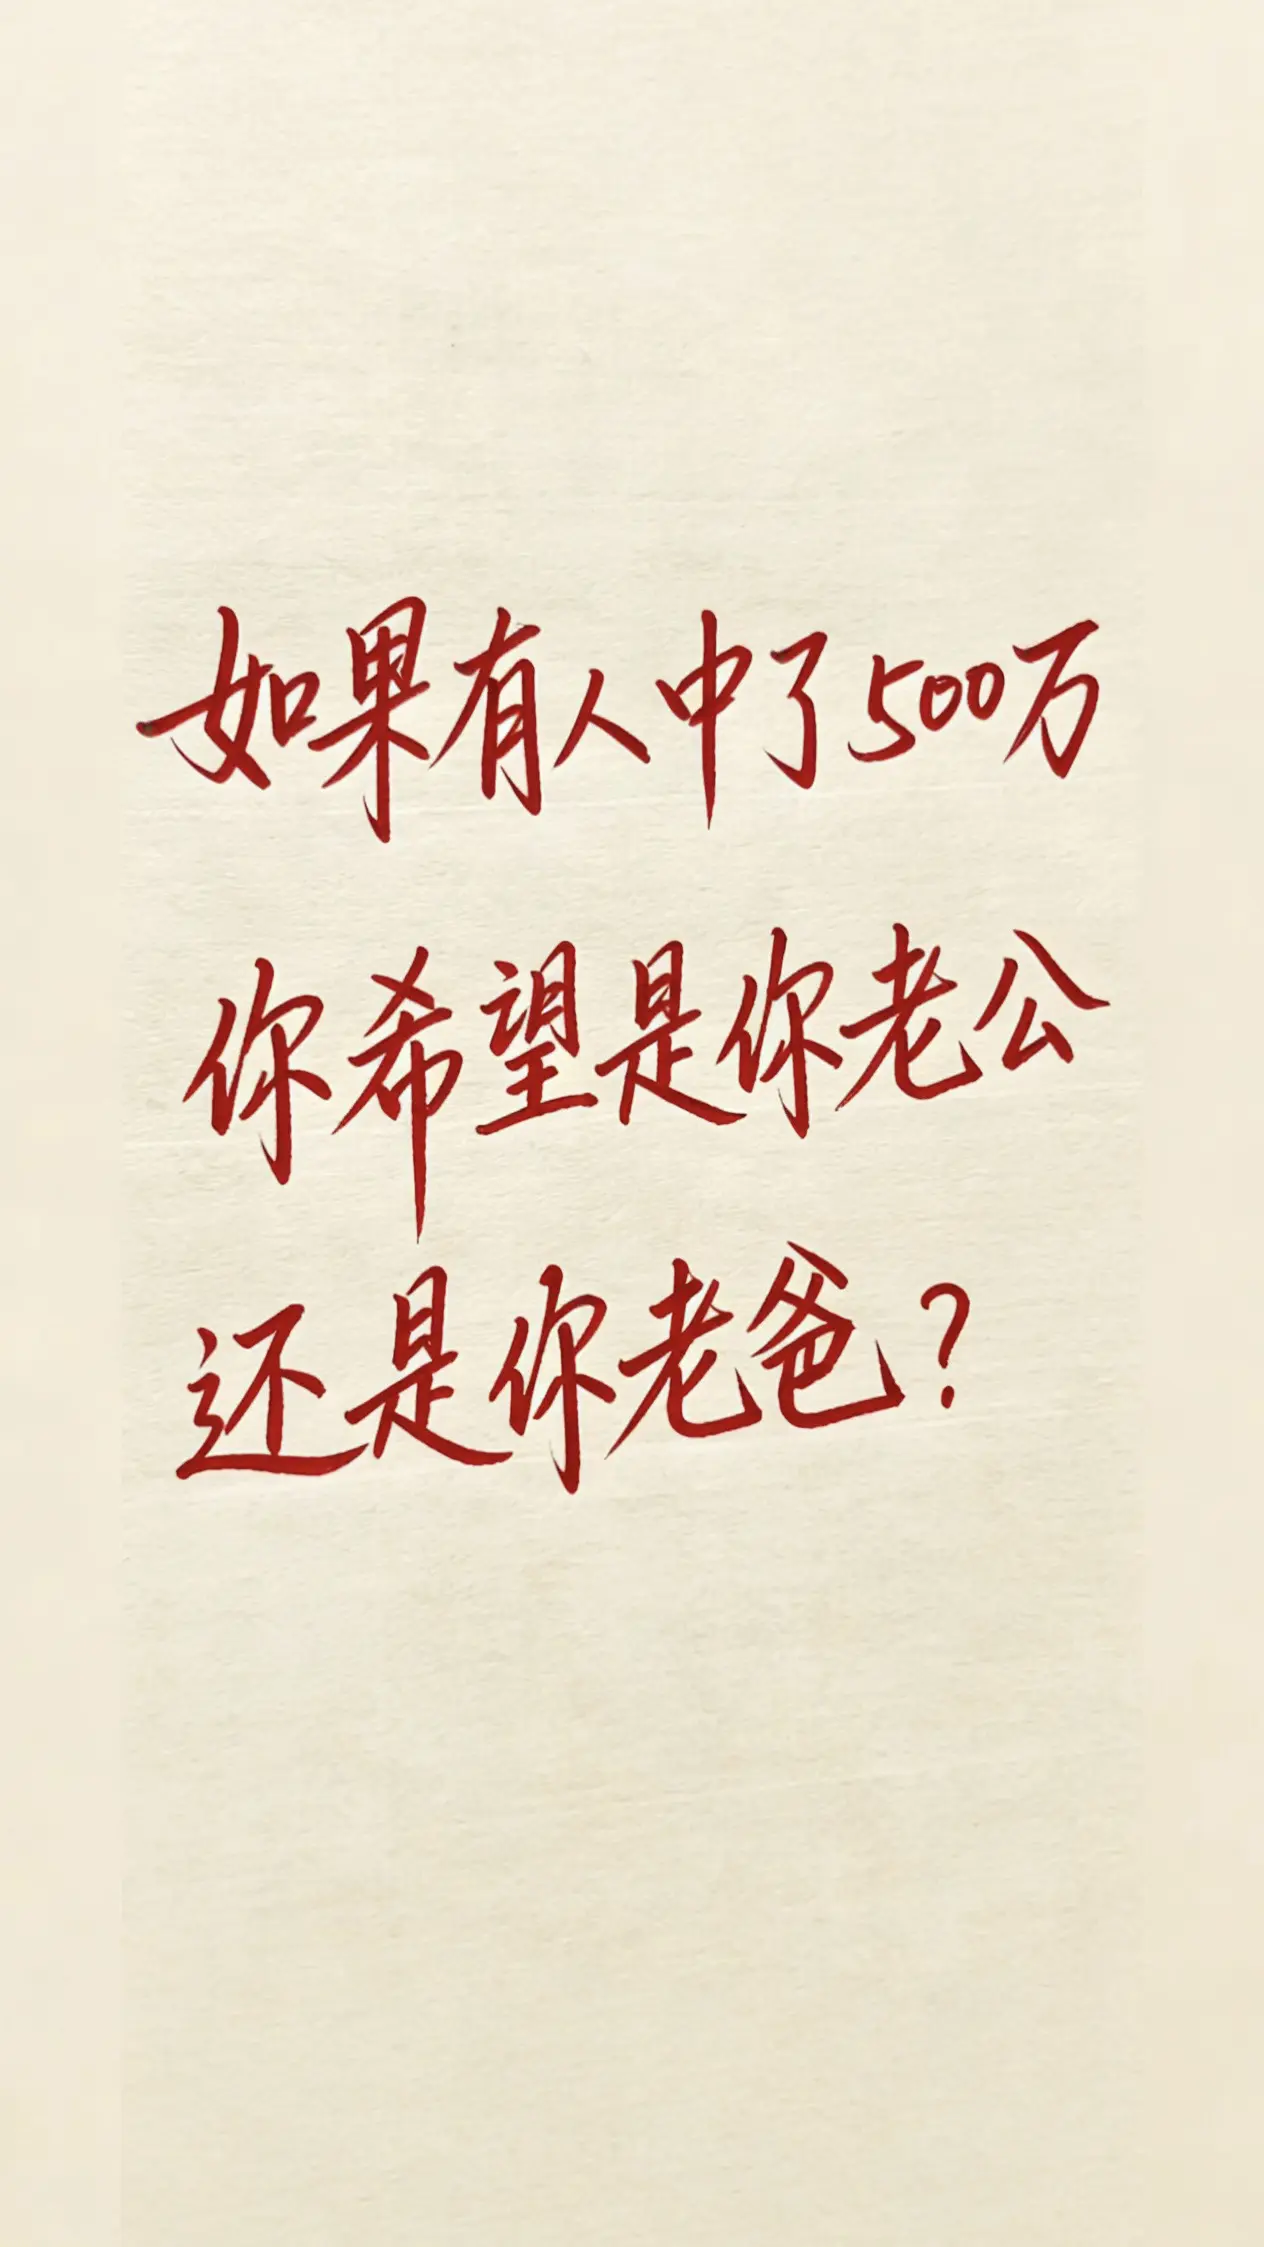 如果有人中了500万
你希望是你老公
还是你老爸?